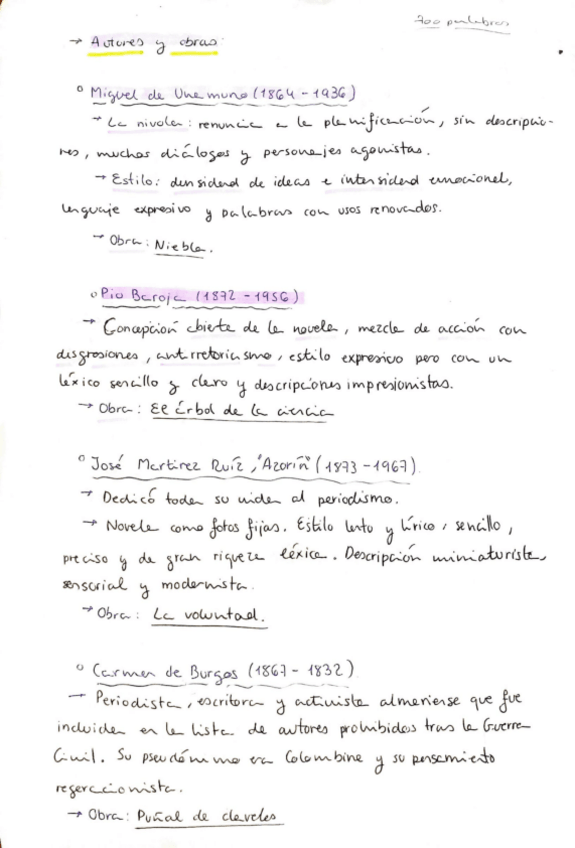 700 palabras
→ Autores y obras:
° Miguel de Unamuno (1864 - 1936)
→ La nivola: renuncia a la planificación, sin descripcio-
nes, muchos diálogos y personajes agonistas.
→ Estilo: densidad de ideas e intensidad emocional,
lenguaje expresivo y palabras con usos renovados.
→ Obra: Niebla.
° Pío Baroja (1872 - 1956)
→ Concepción abierta de la novela, mezcla de acción con
disgresiones, antirretoricismo, estilo expresivo pero con un
léxico sencillo y claro y descripciones impresionistas.
→ Obra: El árbol de la ciencia
° José Martínez Ruíz, "Azorín" (1873 - 1967).
→ Dedicó toda su vida al periodismo.
→ Novela como fotos fijas. Estilo lento y lírico, sencillo,
preciso y de gran riqueza léxica. Descripción miniaturista,
sensorial y modernista.
→ Obra: La voluntad.
° Carmen de Burgos (1867 - 1832)
→ Periodista, escritora y activista almeriense que fue
incluida en la lista de autores prohibidos tras la Guerra
Civil. Su pseudónimo era Colombine y su pensamiento
regeracionista.
→ Obra: Puñal de claveles